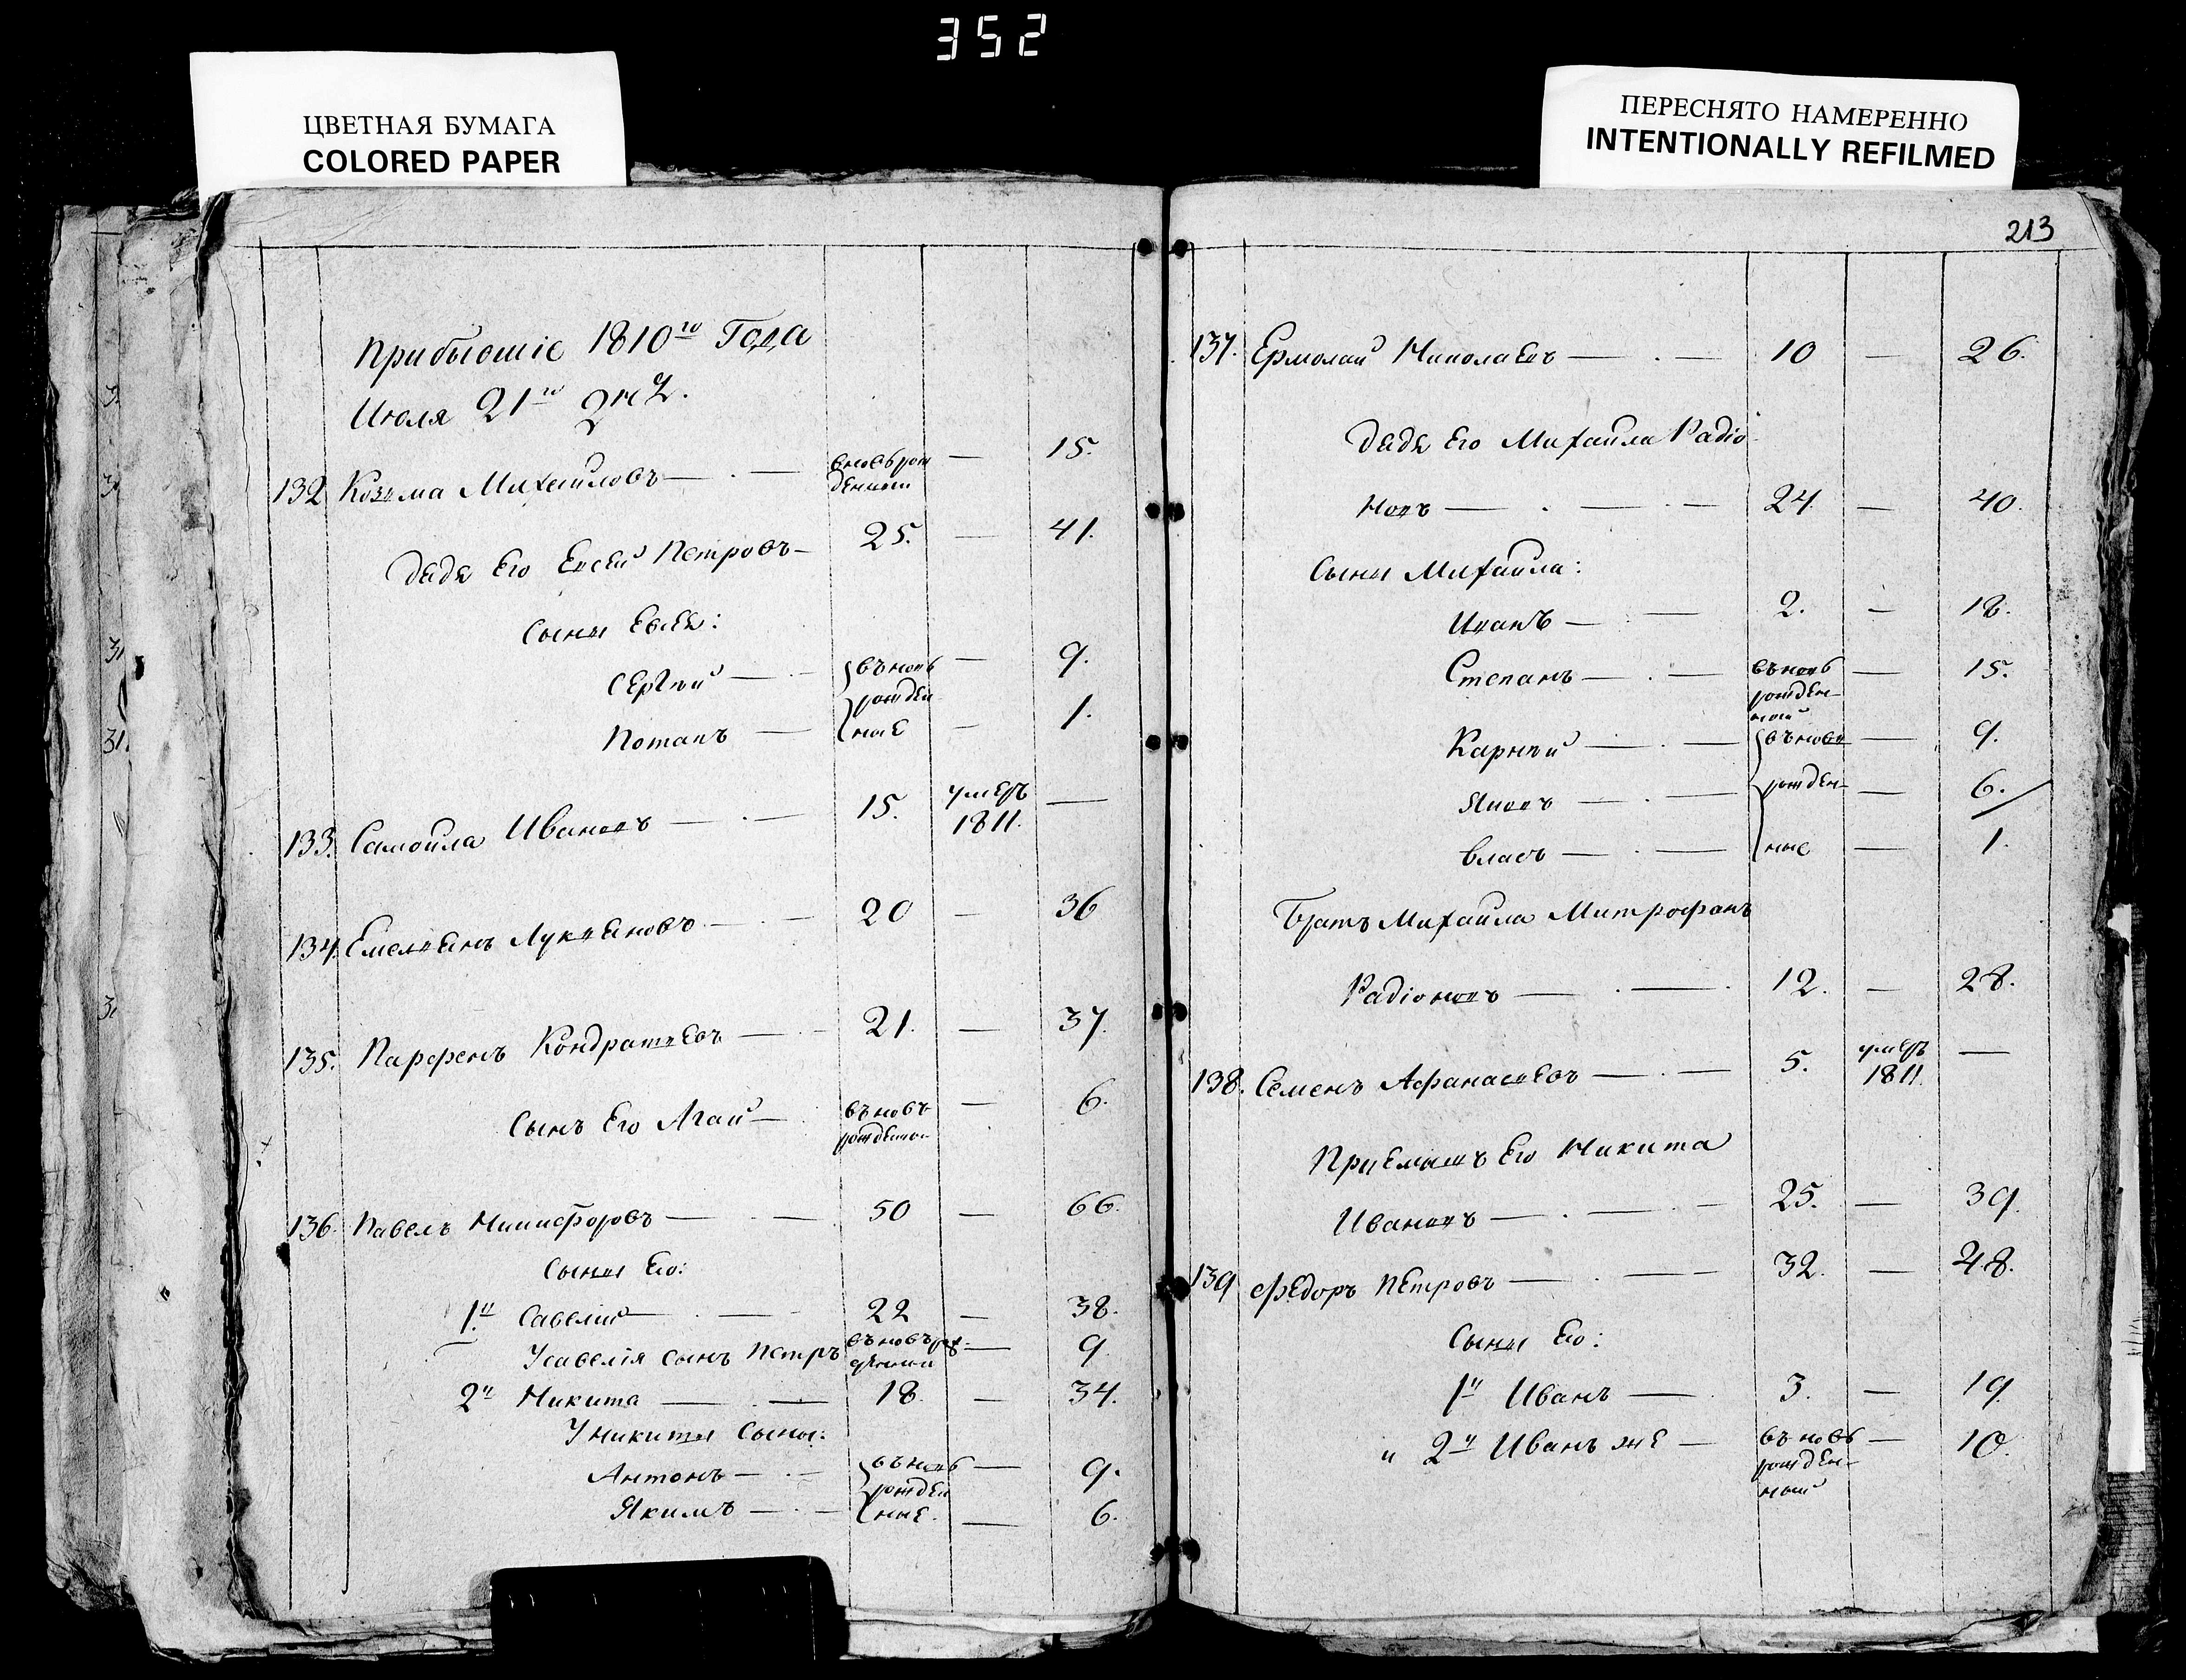 352
ЦВЕТНАЯ БУМАГА
COLORED PAPER
ПЕРЕСНЯТО НАМЕРЕННО
INTENTIONALLY REFILMED
Прибывшіе 1810го Года
Июля 21го дня.
132 Козьма Михаиловъ — вновь рож — 15.
денной
дядя Его Евсей Петровъ — 25. — 41.
Сыны Евсея:
Сергѣй — въновь — 9.
рожден
Потапъ — ные — 1.
133. Самойла Ивановъ — 15. умеръ —
1811.
134. Емельянъ Лукьяновъ — 20 — 36
135. Парфенъ Кондратьевъ — 21. — 37.
Сынъ Его Агай — въновь — 6.
рожденной
136. Павелъ Никифоровъ — 50 — 66.
Сыны Его:
1й Савелий — 22 — 38.
Усавелія сынъ Петръ въновь рож — 9
денный
2й Никита — 18. — 34.
Уникиты Сыны:
Антонъ — въновь — 9.
рожден
Якимъ — ные. — 6.
213
137. Ермолай Николаевъ — 10 — 26.
дядя Его Михаила Радіо
новъ — 24 — 40.
Сыны Михаила:
Иванъ — 2. — 18.
Степанъ — въновь — 15.
рожден-
ной
Карнѣй — въновь — 9.
Яковъ — рожден- — 6.
Власъ — ные — 1.
Братъ Михаила Митрофанъ
Радіоновъ — 12. — 28.
138. Семенъ Афанасьевъ — 5. умеръ —
1811.
Приемышъ Его Никита
Ивановъ — 25. — 39.
139 Федоръ Петровъ — 32. — 48.
Сыны Его:
1й Иванъ — 3. — 19.
" 2й Иванъ же — въновь — 10.
рожден-
ный